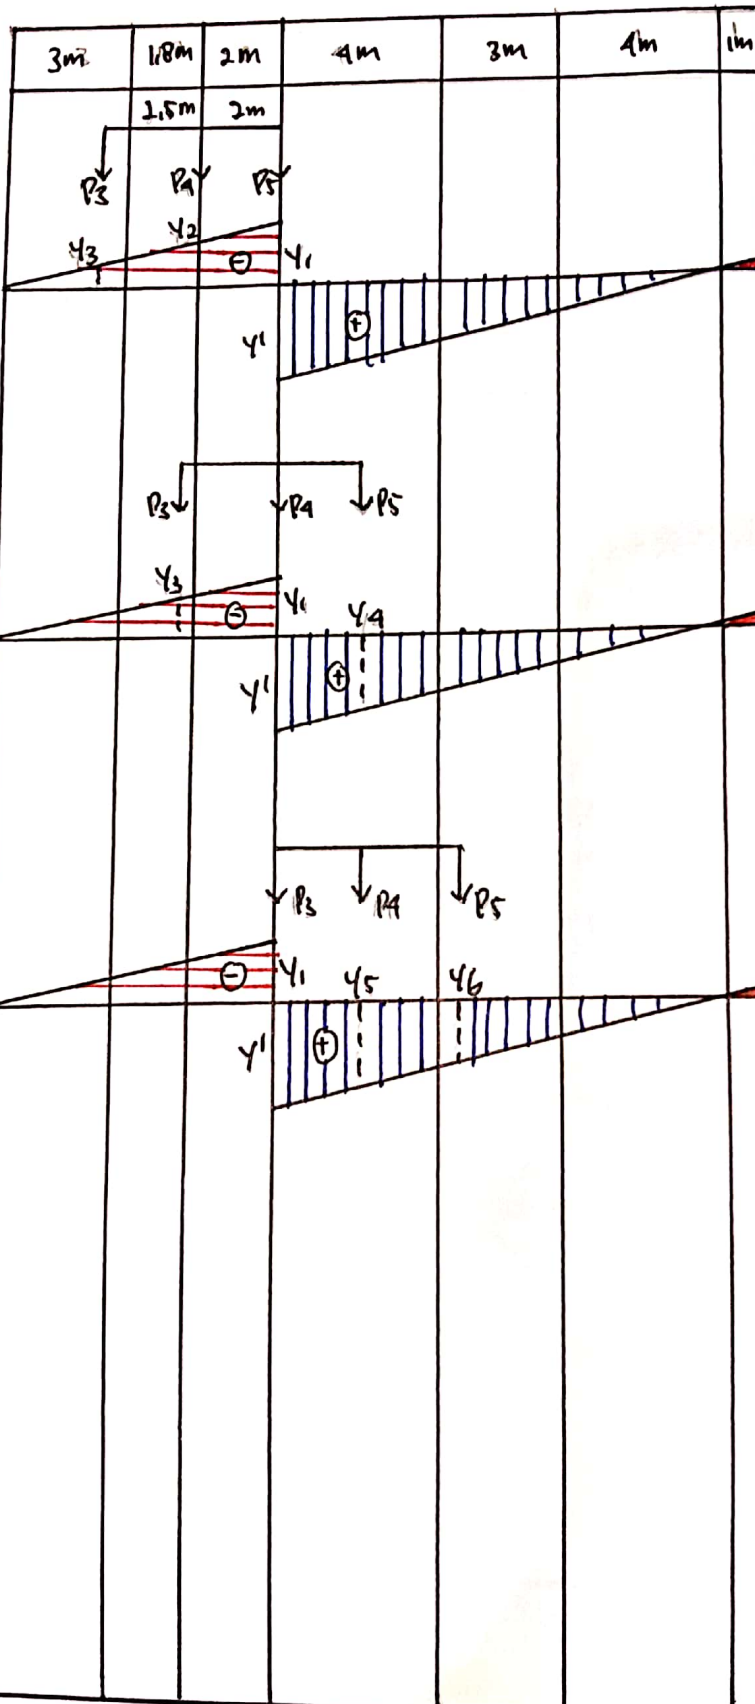 3m 1,8m 2m 4m 3m 4m 1m
2,5m 2m
P3 P4 P5
Y3 Y2 Y1
⊖
Y' ⊕
P3 P4 P5
Y3 Y1 Y4
⊖
Y' ⊕
P3 P4 P5
⊖ Y1 Y5 Y6
Y' ⊕